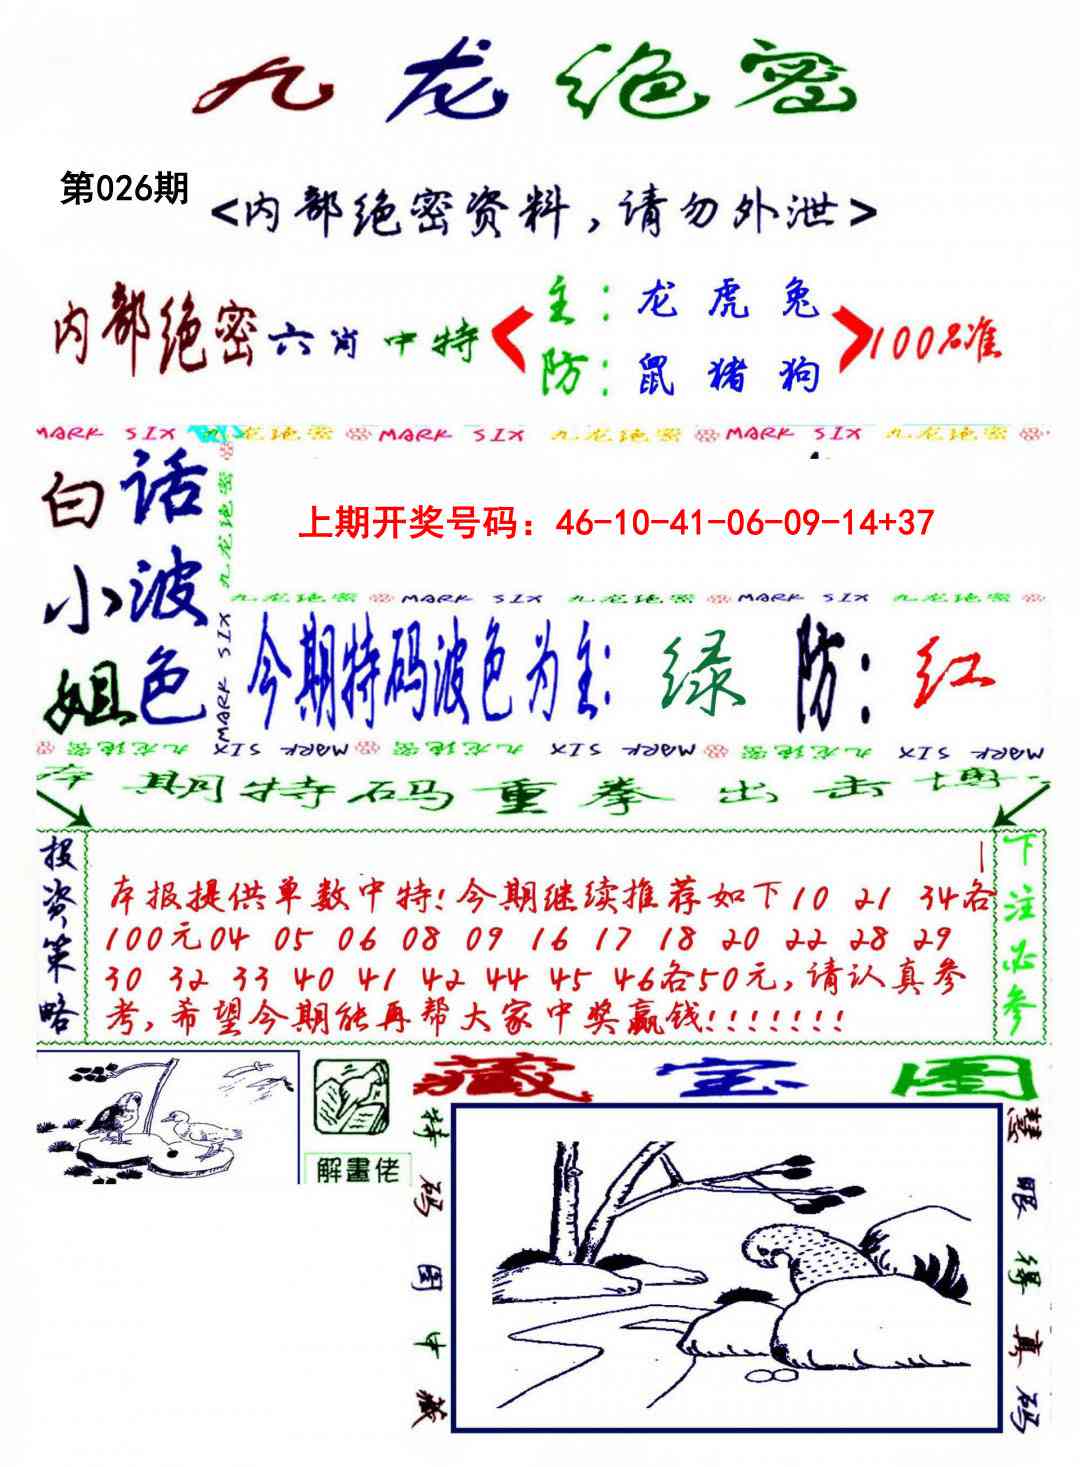 九龙绝密
第026期
<内部绝密资料,请勿外泄>
内部绝密六肖中特
主:龙 虎 兔
防:鼠 猪 狗
100%准
MARK SIX 九龙绝密 MARK SIX 九龙绝密 MARK SIX 九龙绝密
白小姐
话波色
九龙绝密 MARK SIX
上期开奖号码：46-10-41-06-09-14+37
九龙绝密 MARK SIX 九龙绝密 MARK SIX 九龙绝密
今期特码波色为主:绿 防:红
九龙绝密 MARK SIX 九龙绝密 MARK SIX 九龙绝密 MARK SIX
本期特码重拳出击博
投资策略
本报提供单数中特!今期继续推荐如下10 21 34各
100元04 05 06 08 09 16 17 18 20 22 28 29
30 32 33 40 41 42 44 45 46各50元,请认真参
考,希望今期能再帮大家中奖赢钱!!!!!!!
下注必参
解畫佬
藏宝图
特码图中藏
慧眼得真码